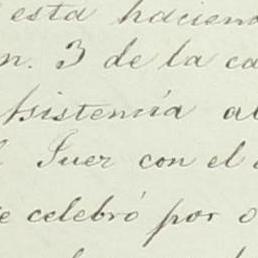 esta hacien
n. 3 de la ca
bsistencia al
Juez con el
e celebró por o